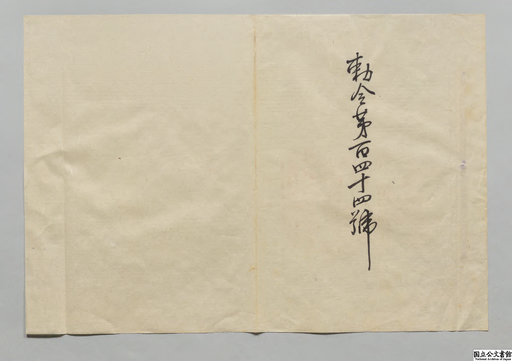 勅令第百四十四號
国立公文書館
National Archives of Japan